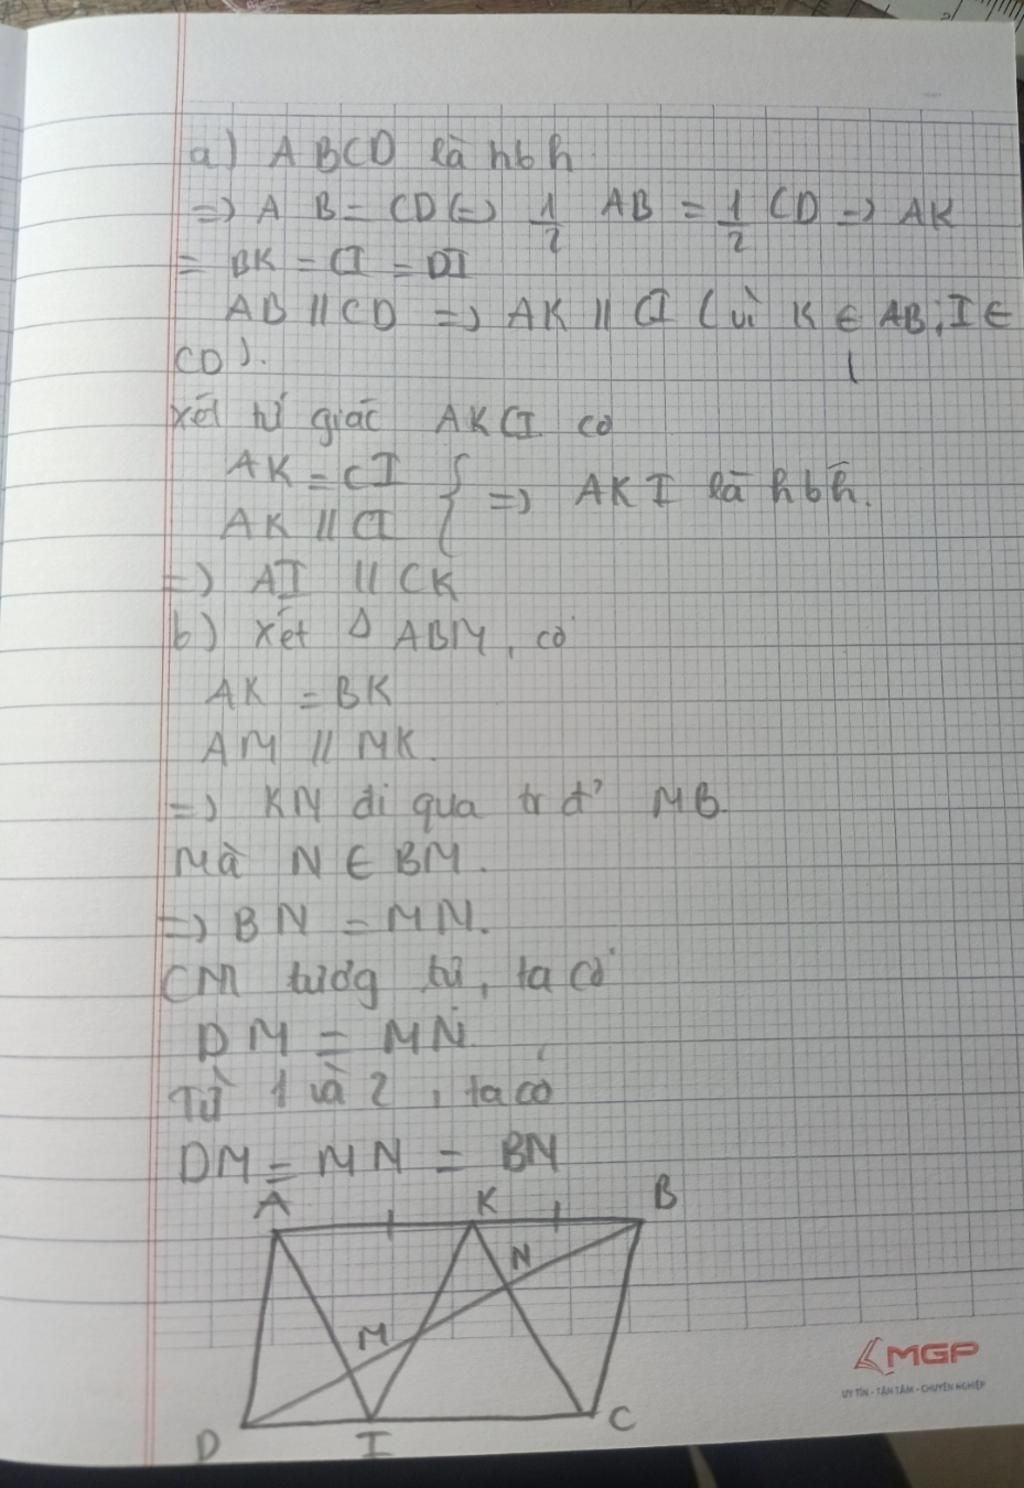 a) ABCD là hbh
=> AB = CD (=) 1/2 AB = 1/2 CD => AK
= BK = CI = DI
AB // CD => AK // CI (vì K ∈ AB, I ∈
CD).
Xét tứ giác AKCI có
AK = CI
AK // CI } => AKI là hbh.
=> AI // CK
b) Xét Δ ABM, có
AK = BK
AM // MK.
=> KN đi qua tr đ' MB.
Mà N ∈ BM.
=> BN = MN.
CM tươg tự, ta có
DM = MN
Từ 1 và 2, ta có
DM = MN = BN
A K B
N
M
D I C
MGP
UY TÍN - TẬN TÂM - CHUYÊN NGHIỆP